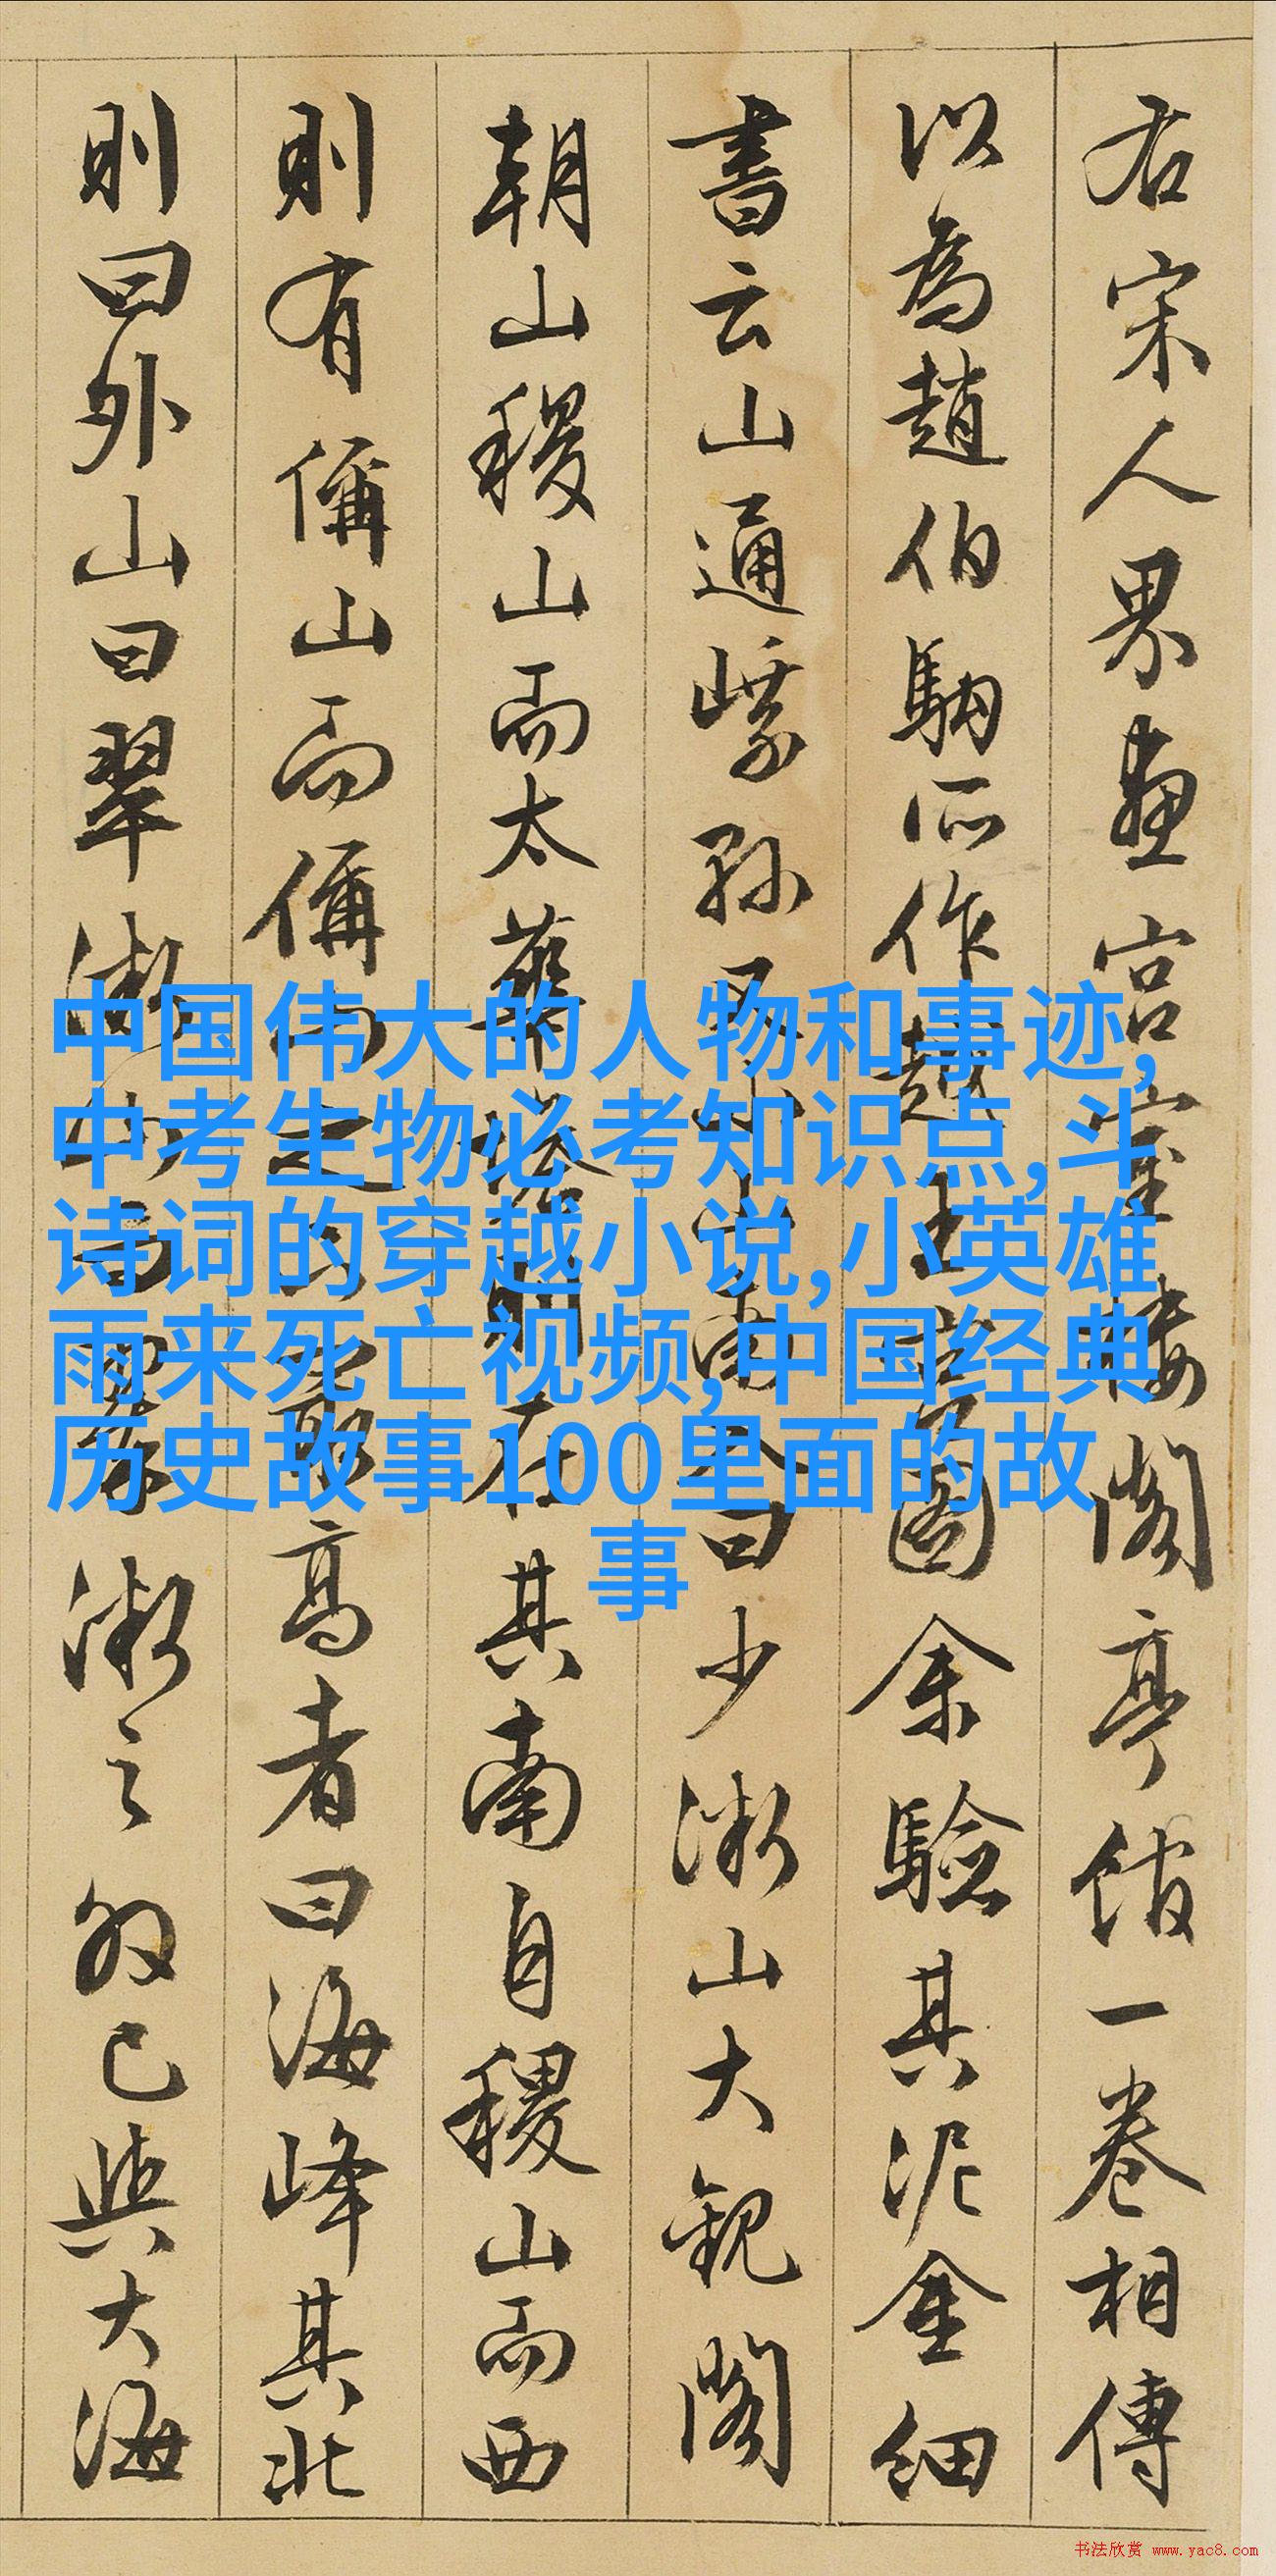 右宋人界畫宮室樓閣亭館一卷相傳
以為趙伯駒所作越王宮圖余驗其泥金細
書云山通曰少山大觀閣
朝山稷山而太華塔則在其南自稷山而西
則有偁山而偁山之最高者曰海峰其北
則曰外山曰翠之外已與大海
中国伟大的人物和事迹,
中考生物必考知识点,斗
诗词的穿越小说,小英雄
雨来死亡视频,中国经典
历史故事100里面的故
事
书法欣赏 www.yac8.com